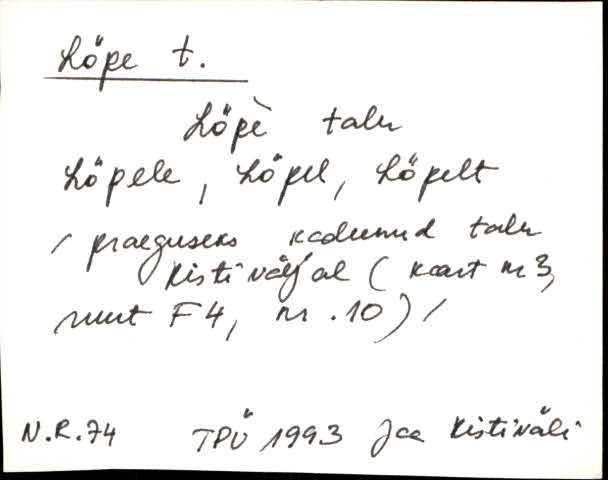 Löpe t.
Löpè talu
Löpele, Löpel, Löpelt
/ praeguseks kadunud talu
Kistiväljal (kaart nr 3,
ruut F4, nr. 10) /
N.R.74 TPÜ 1993 Jaa Kistiväli